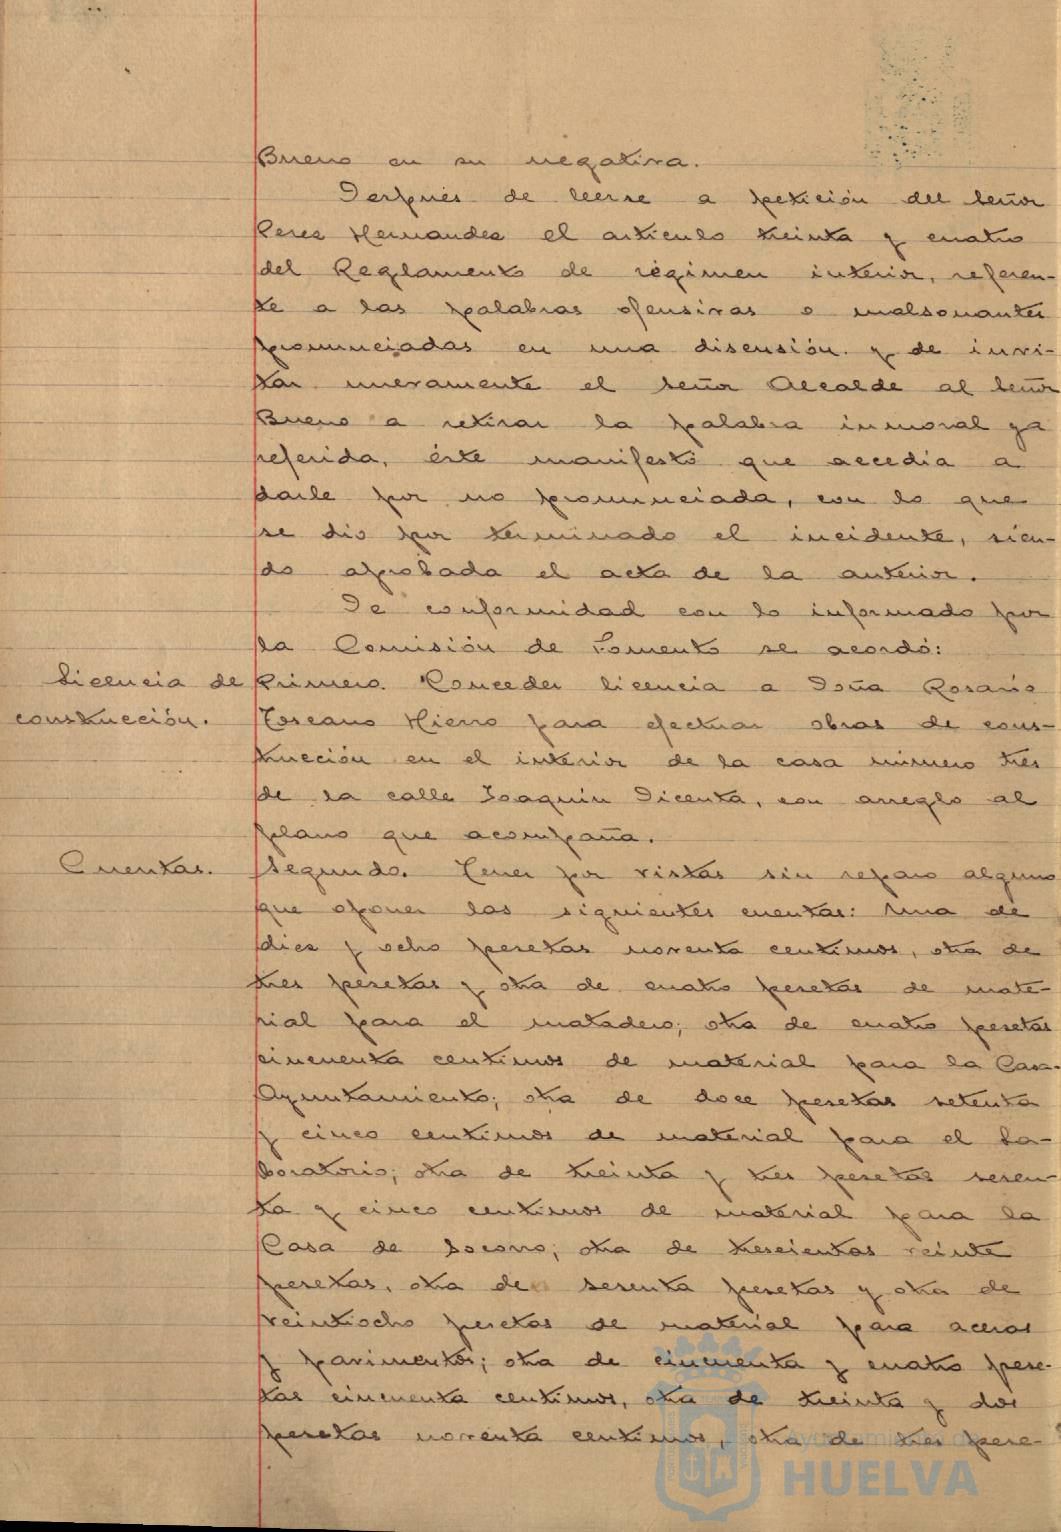 Bueno en su negativa.
Después de leerse a petición del Señor
Perez Hernandez el artículo treinta y cuatro
del Reglamento de régimen interior, referen-
te a las palabras ofensivas o malsonantes
pronunciadas en una discusión y de invi-
tar nuevamente el Señor Alcalde al Señor
Bueno a retirar la palabra inmoral ya
referida, éste manifestó que accedia a
darle por no pronunciada, con lo que
se dio por terminado el incidente, sien-
do aprobada el acta de la anterior.
De conformidad con lo informado por
la Comisión de Fomento se acordó:
Licencia de
construcción.
Primero. Conceder licencia a Doña Rosario
Toscano Hierro para efectuar obras de cons-
trucción en el interior de la casa número tres
de la calle Joaquín Dicenta, con arreglo al
plano que acompaña.
Cuentas.
Segundo. Tener por vistas sin reparo alguno
que oponer las siguientes cuentas: Una de
diez y ocho pesetas noventa centimos, otra de
tres pesetas y otra de cuatro pesetas de mate-
rial para el matadero; otra de cuatro pesetas
cincuenta centimos de material para la Casa-
Ayuntamiento; otra de doce pesetas setenta
y cinco centimos de material para el La-
boratorio; otra de treinta y tres pesetas sesen-
ta y cinco centimos de material para la
Casa de Socorro; otra de trescientas veinte
pesetas, otra de sesenta pesetas y otra de
veintiocho pesetas de material para aceras
y pavimentos; otra de cincuenta y cuatro pese-
tas cincuenta centimos, otra de treinta y dos
pesetas noventa centimos, otra de tres pese-
Ayuntamiento de
HUELVA